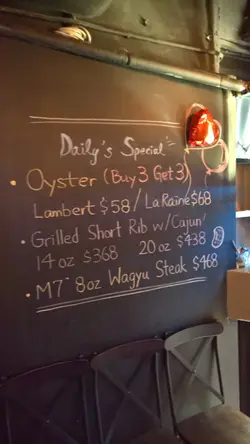 Daily's Special
• Oyster (Buy 3 Get 3)
Lambert $58 / La Raine $68
• Grilled Short Rib w/ Cajun/
14 oz $368 20 oz $438
• M7~ 8oz Wagyu Steak $468